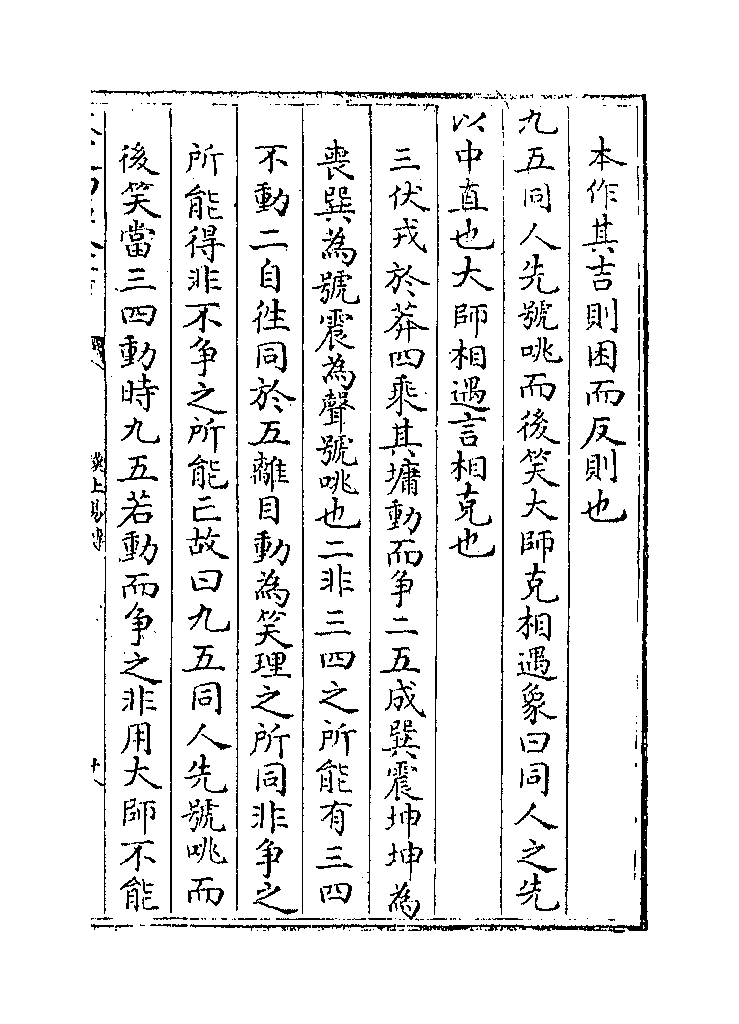 本作其吉則困而反則也
九五同人先號咷而後笑大師克相遇象曰同人之先
以中直也大師相遇言相克也
三伏戎於莽四乘其墉動而争二五成巽震坤坤為
喪巽為號震為聲號咷也二非三四之所能有三四
不動二自徃同於五離目動為笑理之所同非争之
所能得非不争之所能亡故曰九五同人先號咷而
後笑當三四動時九五若動而争之非用大師不能
漢上易傳
十八